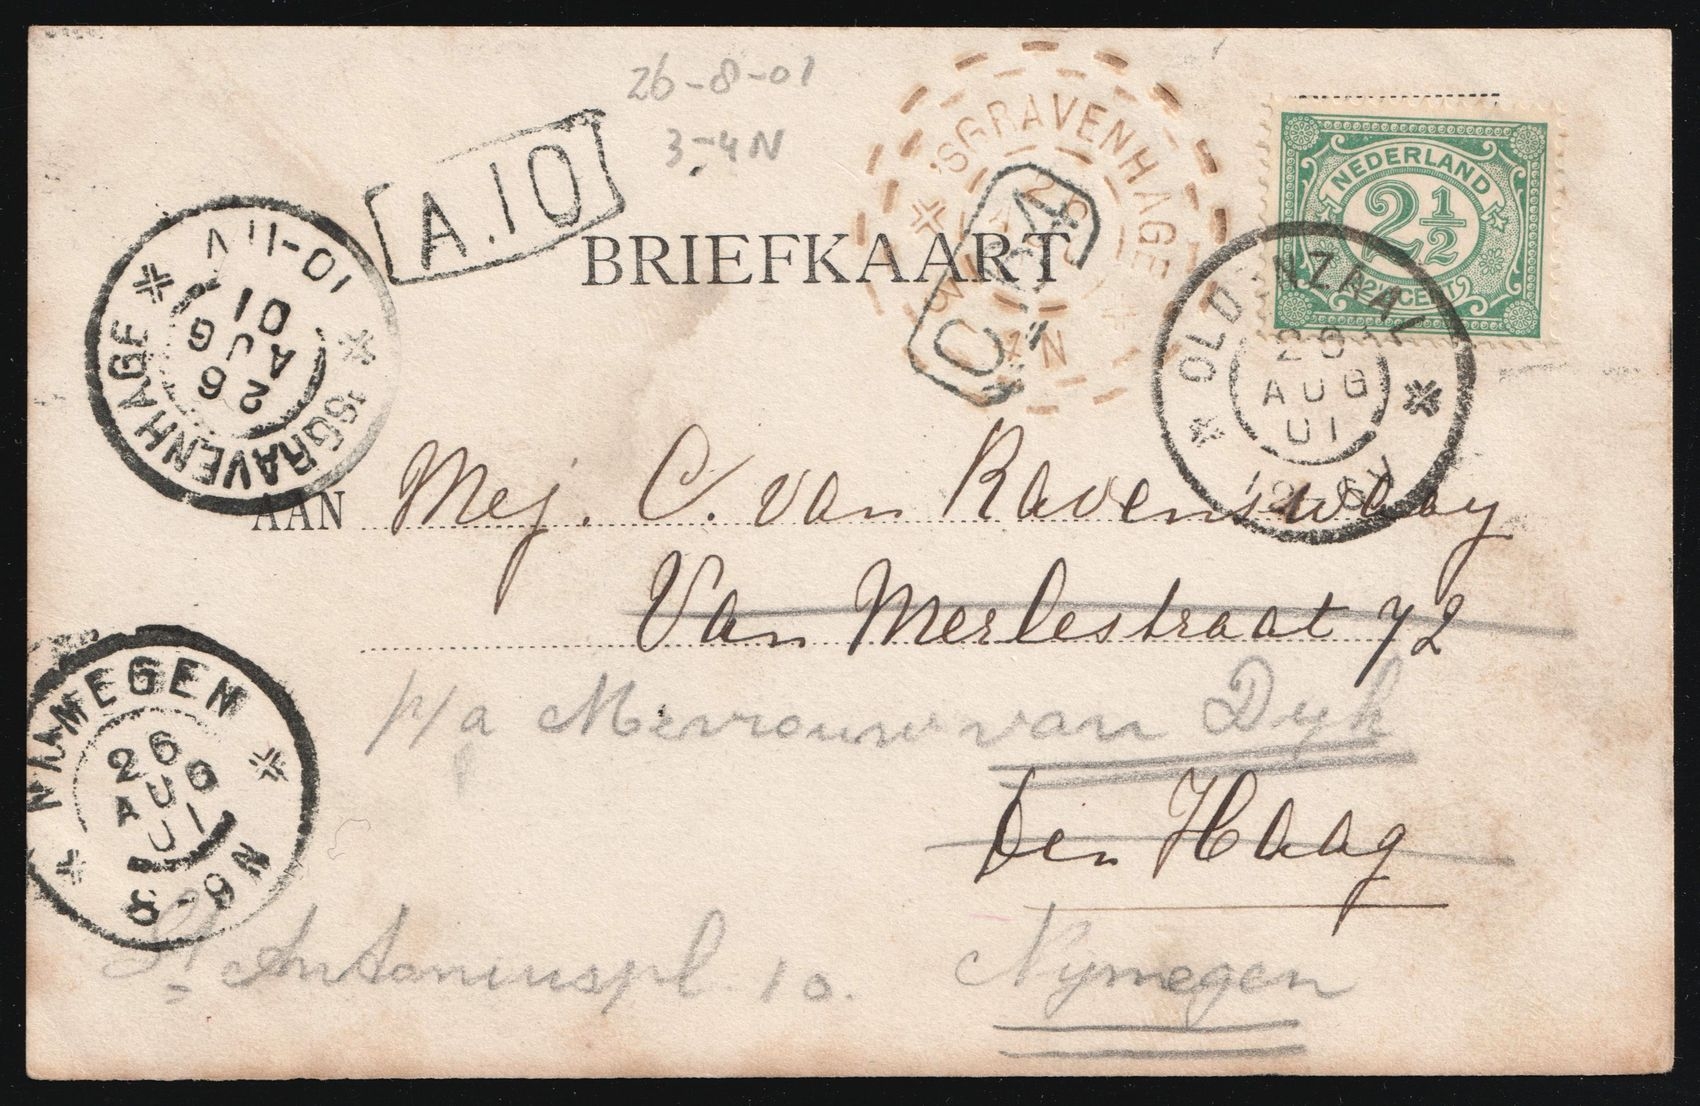 26-8-01
3-4N
A.10
'SGRAVENHAGE
C.34
NEDERLAND
2½
2½ CENT
BRIEFKAART
OLDENZAAL
26
AUG
01
'SGRAVENHAGE
26
AUG
01
AAN Mej. C. van Ravenswaay
Van Merlestraat 72
p/a Mevrouw van Dyk
Den Haag
NIJMEGEN
26
AUG
01
8-9N
St Antoniuspl. 10. Nymegen